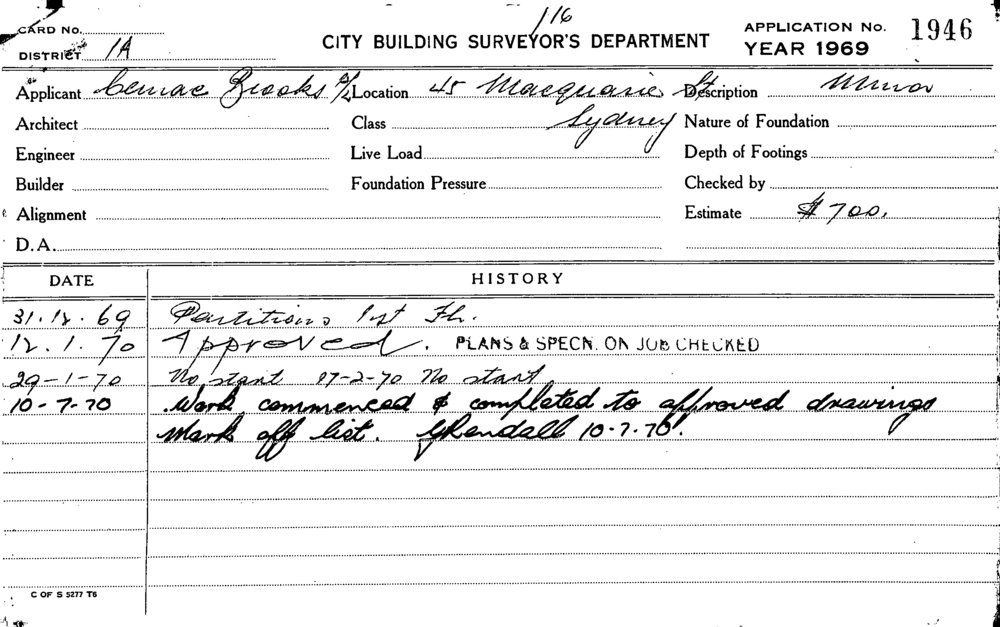 116
CARD No.
APPLICATION No. 1946
DISTRICT 1A
CITY BUILDING SURVEYOR'S DEPARTMENT
YEAR 1969
Applicant Cemac Brooks P/L Location 45 Macquarie St Description Minor
Architect Class Sydney Nature of Foundation
Engineer Live Load Depth of Footings
Builder Foundation Pressure Checked by
Alignment Estimate $700.
D.A.
DATE HISTORY
31.12.69 Partitions 1st Fl.
12.1.70 Approved. PLANS & SPECN. ON JOB CHECKED
29-1-70 No start 27-2-70 No start
10-7-70 Work commenced & completed to approved drawings
Mark off list. GKendall 10-7-70.
C OF S 5277 T6